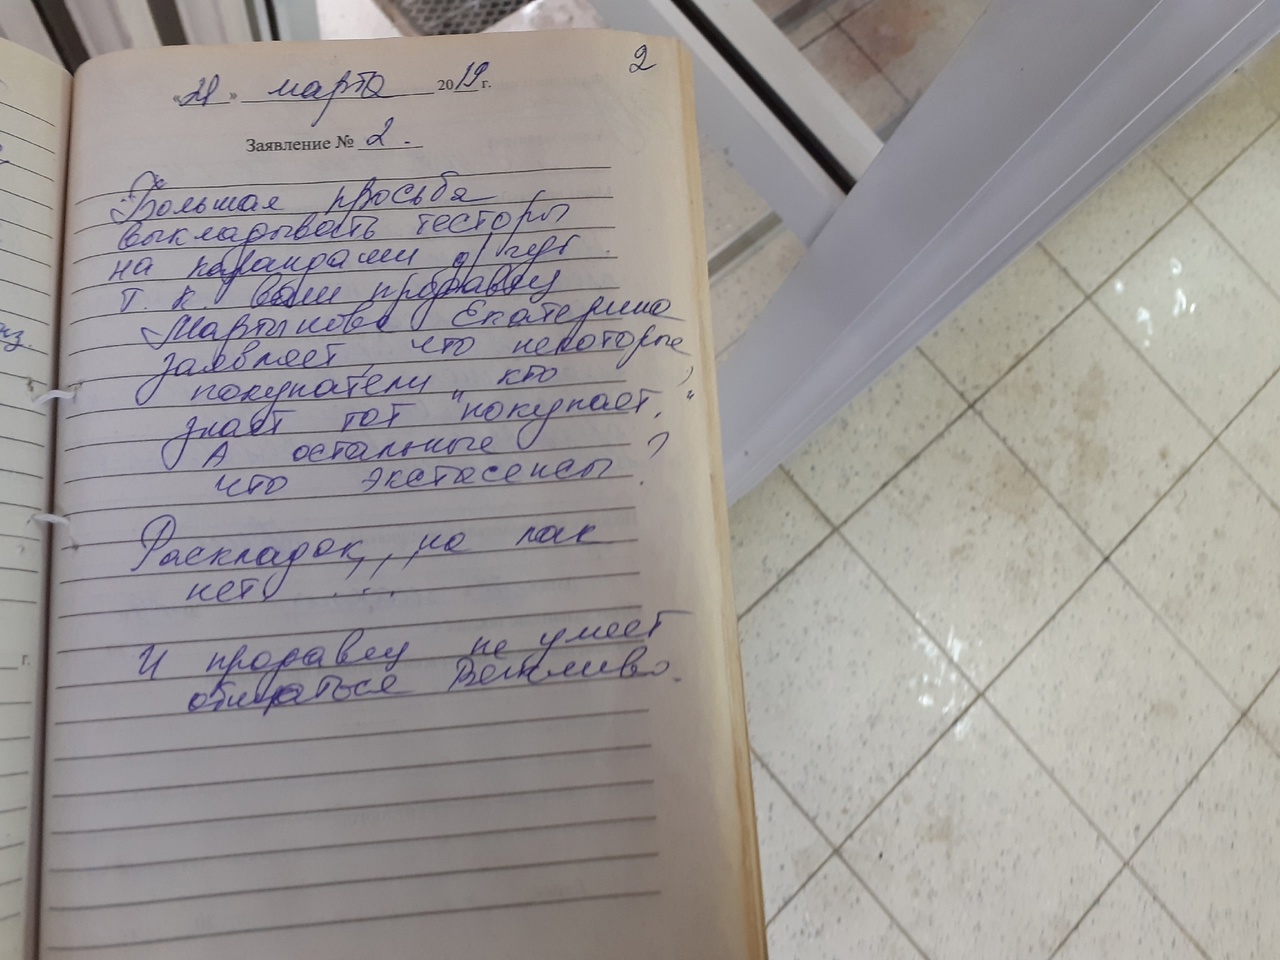 2
«21» марта 2019 г.
Заявление № 2.
Большая просьба
выкладывать тесторы
на карандаши д/губ.
т. к ваш продавец
Мартынова Екатерина
заявляет, что некоторые
покупатели кто
знает тот "покупает,"
А остальные
что экстасенсы.
Раскладок,,, но как
нет ...
И продавец не умеет
общаться Вежливо.
г.